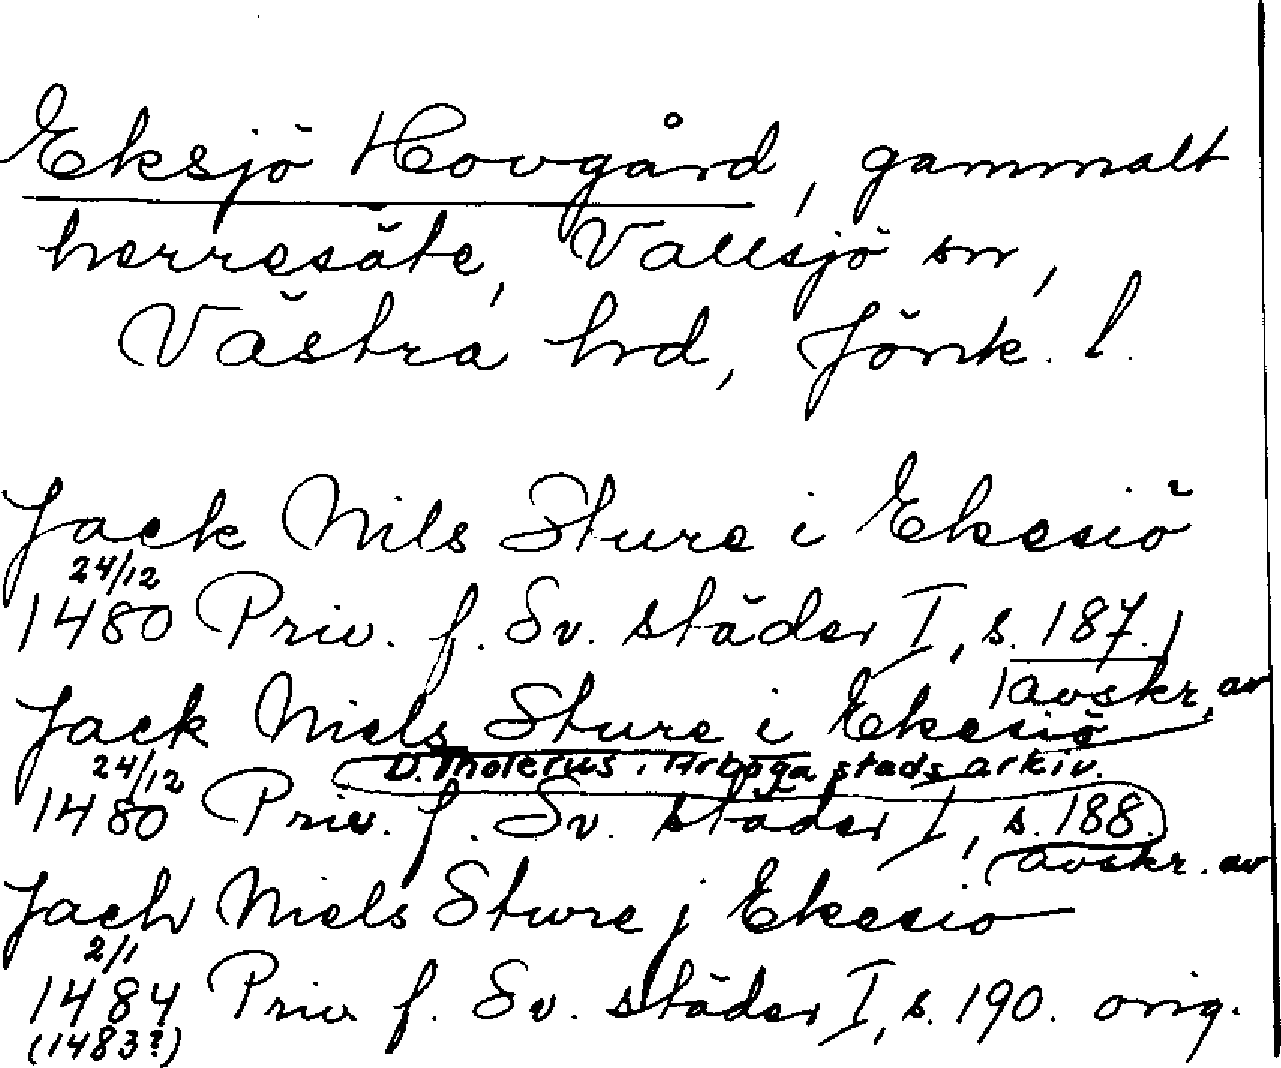 Eksjö Hovgård, gammalt
herresäte, Vallsjö sn,
Västra hd, Jönk. l.
Jack Nils Sture i Ekesiö
24/12
1480 Priv. f. Sv. städer I, s. 187.
avskr. av
Jack Niels Sture i Ekesiö
D. Tholerus i Arboga stads arkiv.
24/12
1480 Priv. f. Sv. städer I, s. 188.
avskr. av
Jach Niels Sture j Ekesio
2/1
1484 Priv f. Sv. städer I, s. 190. orig.
(1483?)